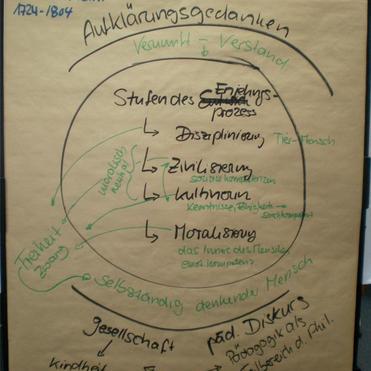 1724-1804
Aufklärungsgedanken
Vernunft – Verstand
Stufen des Erziehungs-
prozess
↳ Disziplinierung Tier-Mensch
moralisch
neutral
↳ Zivilisierung
soziale Kompetenzen
↳ Kultivierung
Kenntnisse, Fähigkeiten → Sachkompetenz
↳ Moralisierung
das Innere des Menschen
Freiheit
Zwang
selbstständig denkender Mensch
gesellschaft
päd. Diskurs
Kindheit
Pädagogik als
Teilbereich d. Phil.